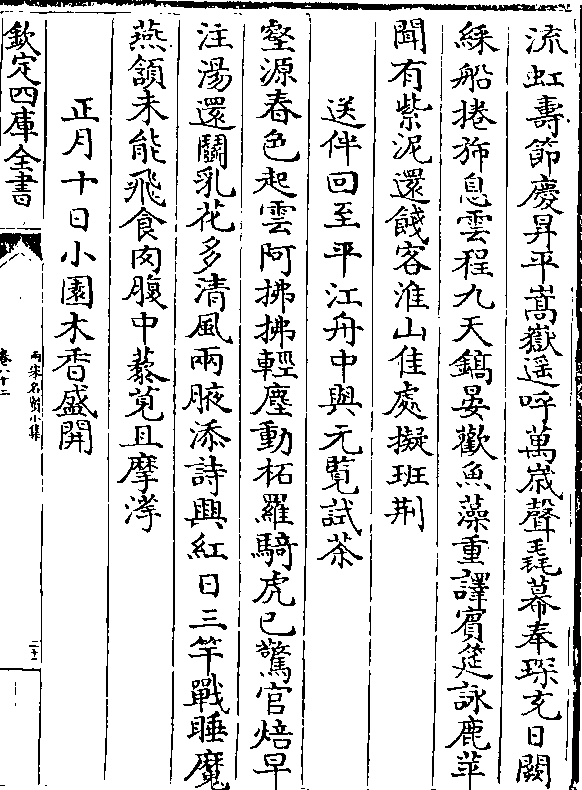 流虹壽節慶昇平嵩嶽遥呼萬嵗聲毳幕奉琛充日闕
綵船捲斾息雲程九天鎬晏歡魚藻重譯賓筵詠鹿苹
聞有紫泥還餞客淮山佳處擬班荆
送伴回至平江舟中與元覽試茶
壑源春色起雲阿拂拂輕塵動柘羅騎虎已驚官焙早
注湯還鬭乳花多清風兩腋添詩興紅日三竿戰睡魔
燕頷未能飛食肉腹中藜莧且摩挲
正月十日小園木香盛開
欽定四庫全書
兩宋名賢小集
卷八十二